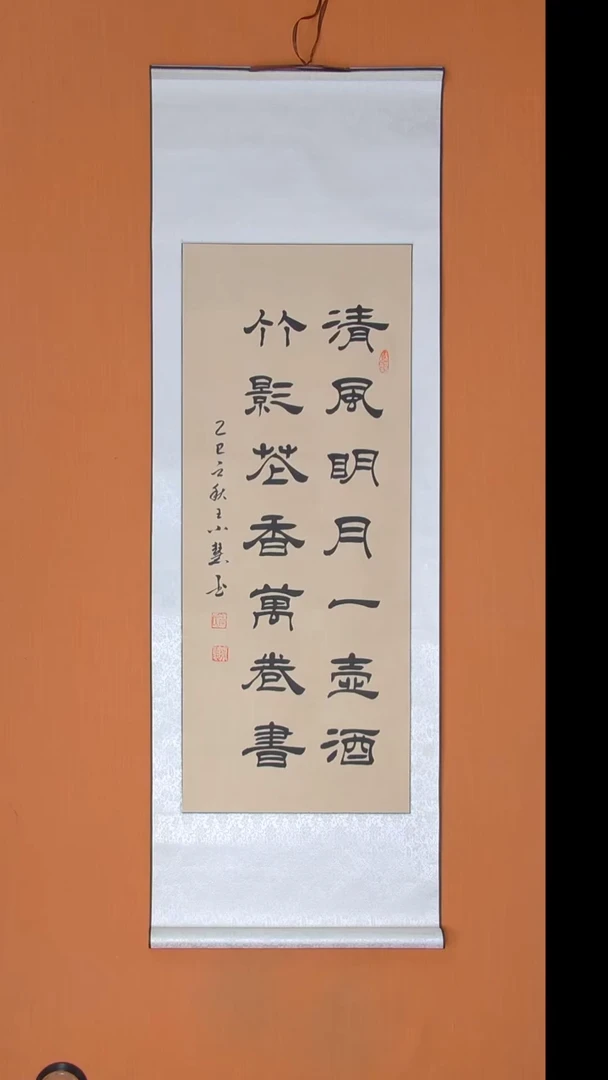 清風明月一壺酒
竹影花香萬卷書
乙巳立秋王小慧书